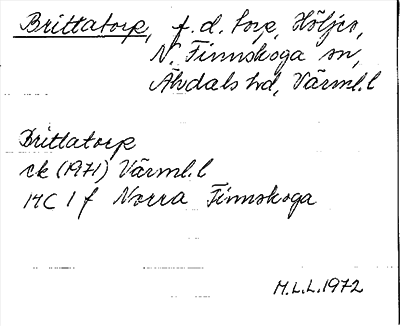 Brittatorp, f.d. torp, Höljes,
N. Finnskoga sn,
Älvdals hd, Värml. l
Brittatorp
ek (1971) Värml. l
14C 1 f Norra Finnskoga
M.L.L. 1972